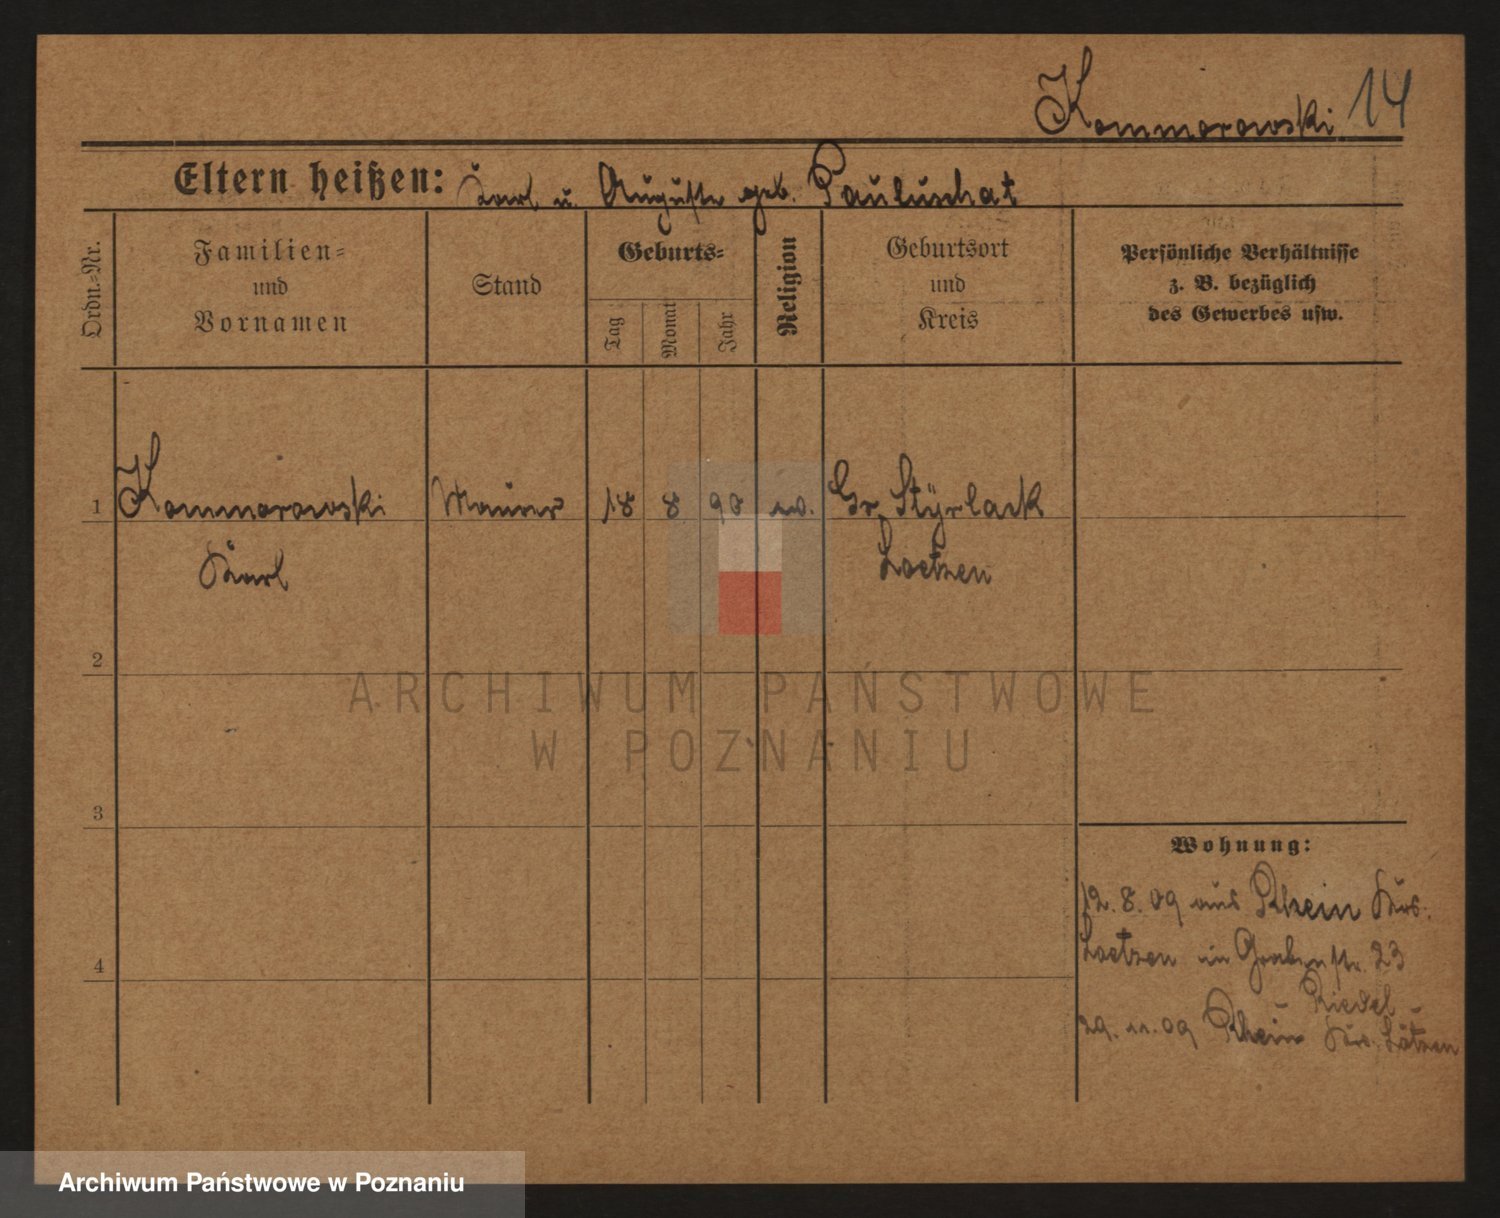 Kommorowski 14
Eltern heißen: Karl u. Auguste geb. Pauluschat
Ordn.-Nr.
Familien-
und
Vornamen
Stand
Geburts-
Tag
Monat
Jahr
Religion
Geburtsort
und
Kreis
Persönliche Verhältnisse
z. B. bezüglich
des Gewerbes usw.
1 Kommorowski Maurer 18 8 90 ev. Gr. Stÿrlack
Karl Loetzen
2
ARCHIWUM PAŃSTWOWE
W POZNANIU
3
Wohnung:
12. 8. 09 aus Rhein Krs.
Loetzen in Grabenstr. 23
4
Riedel
29. 11. 09 Rhein Krs. Lötzen
Archiwum Państwowe w Poznaniu